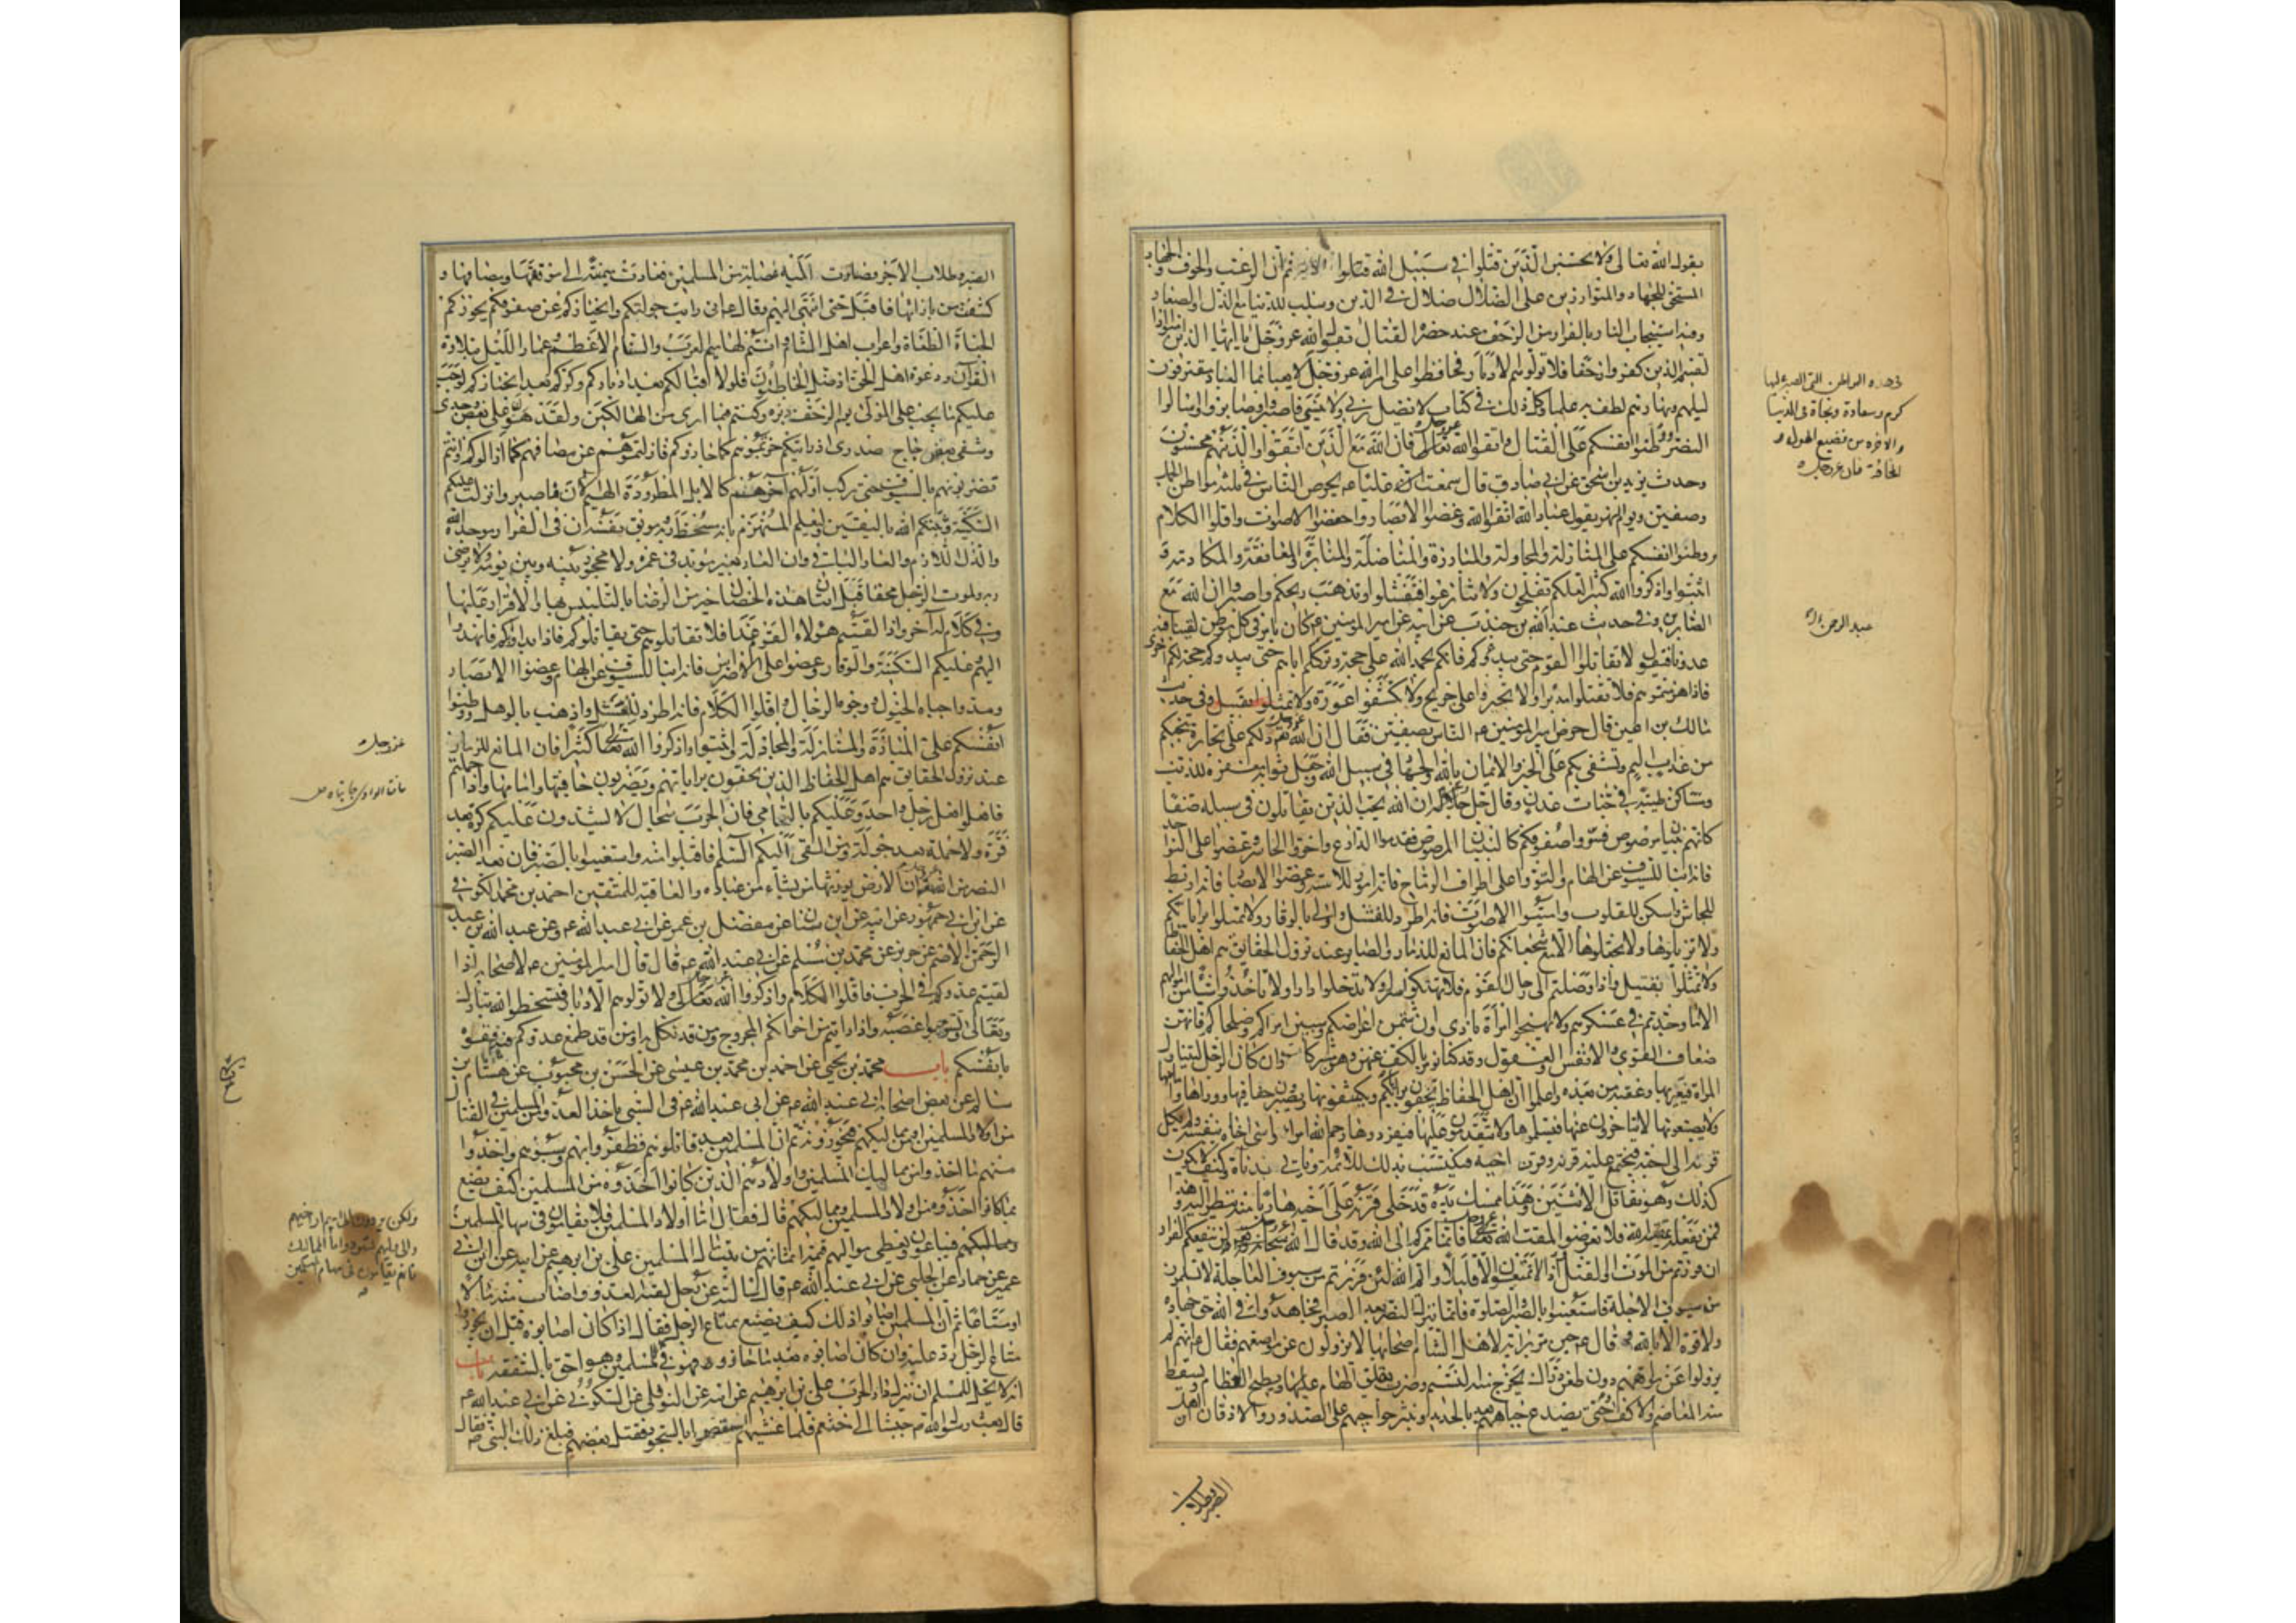 يقول الله تعالى ولا تحسبن الذين قتلوا في سبيل الله ثم ان الرعب والخوف من الجهاد
المستحق للجهاد والمتوازرين على الضلال ضلال في الدين وسلب للدنيا مع الذل والصغار
وفيه استيجاب النار بالفرار من الزحف عند حضرة القتال يقول الله عز وجل يا ايها الذين امنوا اذا
لقيتم الذين كفروا زحفا فلا تولوهم الادبار فحافظوا على امر الله عز وجل لا يعبأ بما العباد مقترفون
ليلهم ونهارهم لطف به علما وكل ذلك في كتاب لا يضل ربي ولا ينسى فاصبروا وصابروا واسألوا
النصر ووطنوا انفسكم على القتال واتقوا الله عز وجل فان الله مع الذين اتقوا والذين هم محسنون
وحدث يزيد بن اسحق عن ابي صادق قال سمعت عليا ع يحرض الناس في ثلثة مواطن الجمل
وصفين ويوم النهر يقول عباد الله اتقوا الله وغضوا الابصار واخفضوا الاصوات واقلوا الكلام
ووطنوا انفسكم على المنازلة والمجاولة والمبارزة والمناضلة والمنابذة والمعانقة والمكادمة
اثبتوا واذكروا الله كثيرا لعلكم تفلحون ولا تنازعوا فتفشلوا وتذهب ريحكم واصبروا ان الله مع
الصابرين وفي حديث عبد الله بن جندب عن ابيه عن امير المؤمنين ع كان يامر في كل موطن لقينا فيه
عدونا فيقول لا تقاتلوا القوم حتى يبدءوكم فانكم بحمد الله على حجة وترككم اياهم حتى يبدءوكم حجة لكم اخرى
فاذا هزمتموهم فلا تقتلوا مدبرا ولا تجهزوا على جريح ولا تكشفوا عورة ولا تمثلوا بقتيل وفي حديث
مالك بن اعين قال حرض امير المؤمنين ع الناس بصفين فقال ان الله عز وجل دلكم على تجارة تنجيكم
من عذاب اليم وتشفي بكم على الخير والايمان بالله والجهاد في سبيل الله وجعل ثوابه مغفرة للذنب
ومساكن طيبة في جنات عدن وقال جل جلاله ان الله يحب الذين يقاتلون في سبيله صفا
كانهم بنيان مرصوص فسووا صفوفكم كالبنيان المرصوص فقدموا الدارع واخروا الحاسر وعضوا على النواجد
فانه انبا للسيوف عن الهام والتووا على اطراف الرماح فانه امور للاسنة وغضوا الابصار فانه اربط
للجاش واسكن للقلوب واميتوا الاصوات فانه اطرد للفشل واولى بالوقار ولا تميلوا براياتكم
ولا تزيلوها ولا تجعلوها الا مع شجعانكم فان المانع للذمار والصابر عند نزول الحقايق هم اهل الحفاظ
ولا تمثلوا بقتيل واذا وصلتم الى رحال القوم فلا تهتكوا سترا ولا تدخلوا دارا ولا تاخذوا شيئا من اموالهم
الا ما وجدتم في عسكرهم ولا تهيجوا امرأة باذى وان شتمن اعراضكم وسببن امراءكم وصلحاءكم فانهن
ضعاف القوى والانفس والعقول وقد كنا نؤمر بالكف عنهن وهن مشركات وان كان الرجل ليتناول
المرأة فيعير بها وعقبه من بعده واعلموا ان اهل الحفاظ يحفون براياتكم ويكتنفونها ويصيرون حفافيها ووراءها وامامها
ولا يضيعونها لا يتاخرون عنها فيسلموها ولا يتقدمون عليها فيفردوها رحم الله امرأ واسى اخاه بنفسه ولم يكل
قرنه الى اخيه فيجتمع عليه قرنه وقرن اخيه فيكتسب بذلك اللائمة وياتي بدناءة وكيف لا يكون
كذلك وهو يقاتل الاثنين وهذا ممسك يده قد خلى قرنه على اخيه هاربا منه ينظر اليه وهذا
فمن يفعله يمقته الله فلا تعرضوا لمقت الله عز وجل فانما ممركم الى الله وقد قال الله عز وجل لن ينفعكم الفرار
ان فررتم من الموت او القتل واذا لا تمتعون الا قليلا وايم الله لئن فررتم من سيوف العاجلة لا تسلمون
من سيوف الاجلة فاستعينوا بالصبر والصلوة فانما ينزل النصر بعد الصبر فجاهدوا في الله حق جهاده
ولا قوة الا بالله وقال ع حين مر براية لاهل الشام اصحابها لا يزولون عن مواضعهم فقال ع انهم لن
يزولوا عن مواقفهم دون طعن دراك يخرج منه النسيم وضرب يفلق الهام ويطيح العظام ويسقط
منه المعاصم والاكف حتى تصدع جباههم بعمد الحديد وتنثر حواجبهم على الصدور والاذقان اين اهل
الصبر وطلاب
في هذه المواطن التي الصبر عليها
كرم وسعادة ونجاة في الدنيا
والاخرة من فضيع الهول و
المخافة فان عز وجل
عبد الرحمن بن
الصبر وطلاب الاجر فصارت اليه عصابة من المسلمين فعادت ميمنته الى موقفها ومصافها و
كشفت من بازائها فاقبل حتى انتهى اليهم فقال ع اني رايت جولتكم وانحيازكم عن صفوفكم يحوزكم
الجفاة الطغاة واعراب اهل الشام وانتم لهاميم العرب والسنام الاعظم عمار الليل بتلاوة
القرآن ودعوة اهل الحق اذ ضل الخاطئون فلولا اقبالكم بعد ادباركم وكركم بعد انحيازكم لوجب
عليكم ما يجب على المولى يوم الزحف دبره وكنتم فيما ارى من الهالكين ولقد هون علي بعض وجدي
وشفى بعض حاج صدري اذ رايتكم حزتموهم كما حازوكم فازلتموهم عن مصافهم كما ازالوكم وانتم
تضربونهم بالسيوف حتى ركب اولهم آخرهم كالابل المطرودة الهيم الآن فاصبروا نزلت عليكم
السكينة وثبتكم الله باليقين وليعلم المنهزم بانه مسخط ربه وموبق نفسه ان في الفرار موجدة الله
والذل اللازم والعار الباقي وان الفار لغير مزيد في عمره ولا محجوز بينه وبين يومه ولا يرضى
ربه ولموت الرجل محقا قبل اتيان هذه الخصال خير من الرضا بالتلبس بها والاقرار عليها
وفي كلام له آخر واذا لقيتم هؤلاء القوم غدا فلا تقاتلوهم حتى يقاتلوكم فاذا بدأوكم فانهدوا
اليهم وعليكم السكينة والوقار وعضوا على الاضراس فانه انبا للسيوف عن الهام وغضوا الابصار
ومدوا جباه الخيول ووجوه الرجال واقلوا الكلام فانه اطرد للفشل واذهب بالوهل ووطنوا
انفسكم على المبارزة والمنازلة والمجادلة واثبتوا واذكروا الله كثيرا فان المانع للذمار
عند نزول الحقايق هم اهل الحفاظ الذين يحفون براياتهم ويضربون حافتيها وامامها واذا حملتم
فافعلوا فعل رجل واحد وعليكم بالتحامي فان الحرب سجال لا يشدون عليكم كرة بعد
فرة ولا حملة بعد جولة ومن القى اليكم السلم فاقبلوا منه واستعينوا بالصبر فان بعد الصبر
النصر من الله ان الارض يورثها من يشاء من عباده والعاقبة للمتقين احمد بن محمد الكوفي
عن ابن جمهور عن ابيه عن محمد بن سنان عن مفضل بن عمر عن ابي عبد الله ع وعن عبد الله بن عبد
الرحمن الاصم عن حريز عن محمد بن مسلم عن ابي عبد الله ع قال قال امير المؤمنين ع لاصحابه اذا
لقيتم عدوكم في الحرب فاقلوا الكلام واذكروا الله عز وجل ولا تولوهم الادبار فتسخطوا الله تبارك
وتعالى وتستوجبوا غضبه واذا رايتم من اخوانكم المجروح ومن قد نكل به او من قد طمع عدوكم فيه فقوه
بانفسكم باب محمد بن يحيى عن احمد بن محمد بن عيسى عن الحسن بن محبوب عن هشام بن
سالم عن بعض اصحاب ابي عبد الله ع عن ابي عبد الله ع في السبي ياخذ العدو من المسلمين في القتال
من اولاد المسلمين او من مماليكهم فيحوزونه ثم ان المسلمين بعد قاتلوهم فظفروا بهم وسبوهم واخذوا
منهم ما اخذوا من مماليك المسلمين واولادهم الذين كانوا اخذوه من المسلمين كيف يصنع
بما كانوا اخذوه من اولاد المسلمين ومماليكهم قال فقال اما اولاد المسلمين فلا يقامون في سهام المسلمين
ومماليكهم فيباعون ويعطى مواليهم قيمة اثمانهم من بيت مال المسلمين علي بن ابرهيم عن ابيه عن ابن ابي
عمير عن حماد عن الحلبي عن ابي عبد الله ع قال سالته عن رجل لقيه العدو واصاب منه مالا
او متاعا ثم ان المسلمين اصابوا ذلك كيف يصنع بمتاع الرجل فقال اذا كان اصابوه قبل ان يحوزوا
متاع الرجل رد عليه وان كان اصابوه بعد ما حازوه فهو فيء للمسلمين وهو احق بالشفعة باب
انه لا يحل للمسلم ان ينزل دار الحرب علي بن ابرهيم عن ابيه عن النوفلي عن السكوني عن ابي عبد الله ع
قال بعث رسول الله ص جيشا الى خثعم فلما غشيهم استعصموا بالسجود فقتل بعضهم فبلغ ذلك النبي ص فقال
عز وجل
ولكن يردون الى ابيهم او اخيهم
والى وليهم بشهود واما المماليك
فانهم يقامون في سهام المسلمين